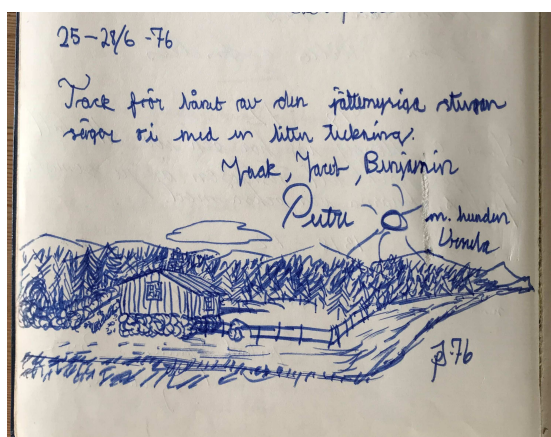 25-28/6 -76
Tack för lånet av den jättemysiga stugan
säger vi med en liten teckning.
Isak, Jacob, Benjamin
Petra
m. hunden
Ursula
-76